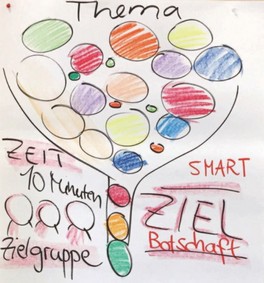 Thema
ZEIT
10 Minuten
SMART
ZIEL
Botschaft
Zielgruppe